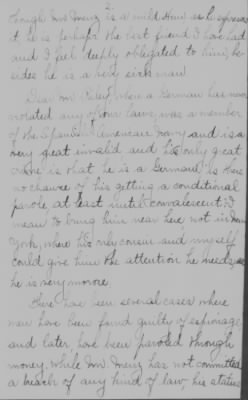 2.
though Mr Menz is a mild Hun as to speak
it, he is perhaps the best friend I have had
and I feel deeply obligated to him, be-
sides he is a very sick man.
Dear Mr Palmer, here a German has never
violated any of our laws, was a member
of the Spanish American War, and is a
very great invalid and his only great
crime is that he is a German. Is there
no chance of his getting a conditional
parole at least until convalescent, I'd
mean to bring him near here not in New
York, where his only cousin and myself
could give him the attention he needs as
he is very morose
There have been several cases where
men have been found guilty of espionage
and later have been paroled through
money, while Mr. Menz has not committed
a breach of any kind of law, his status